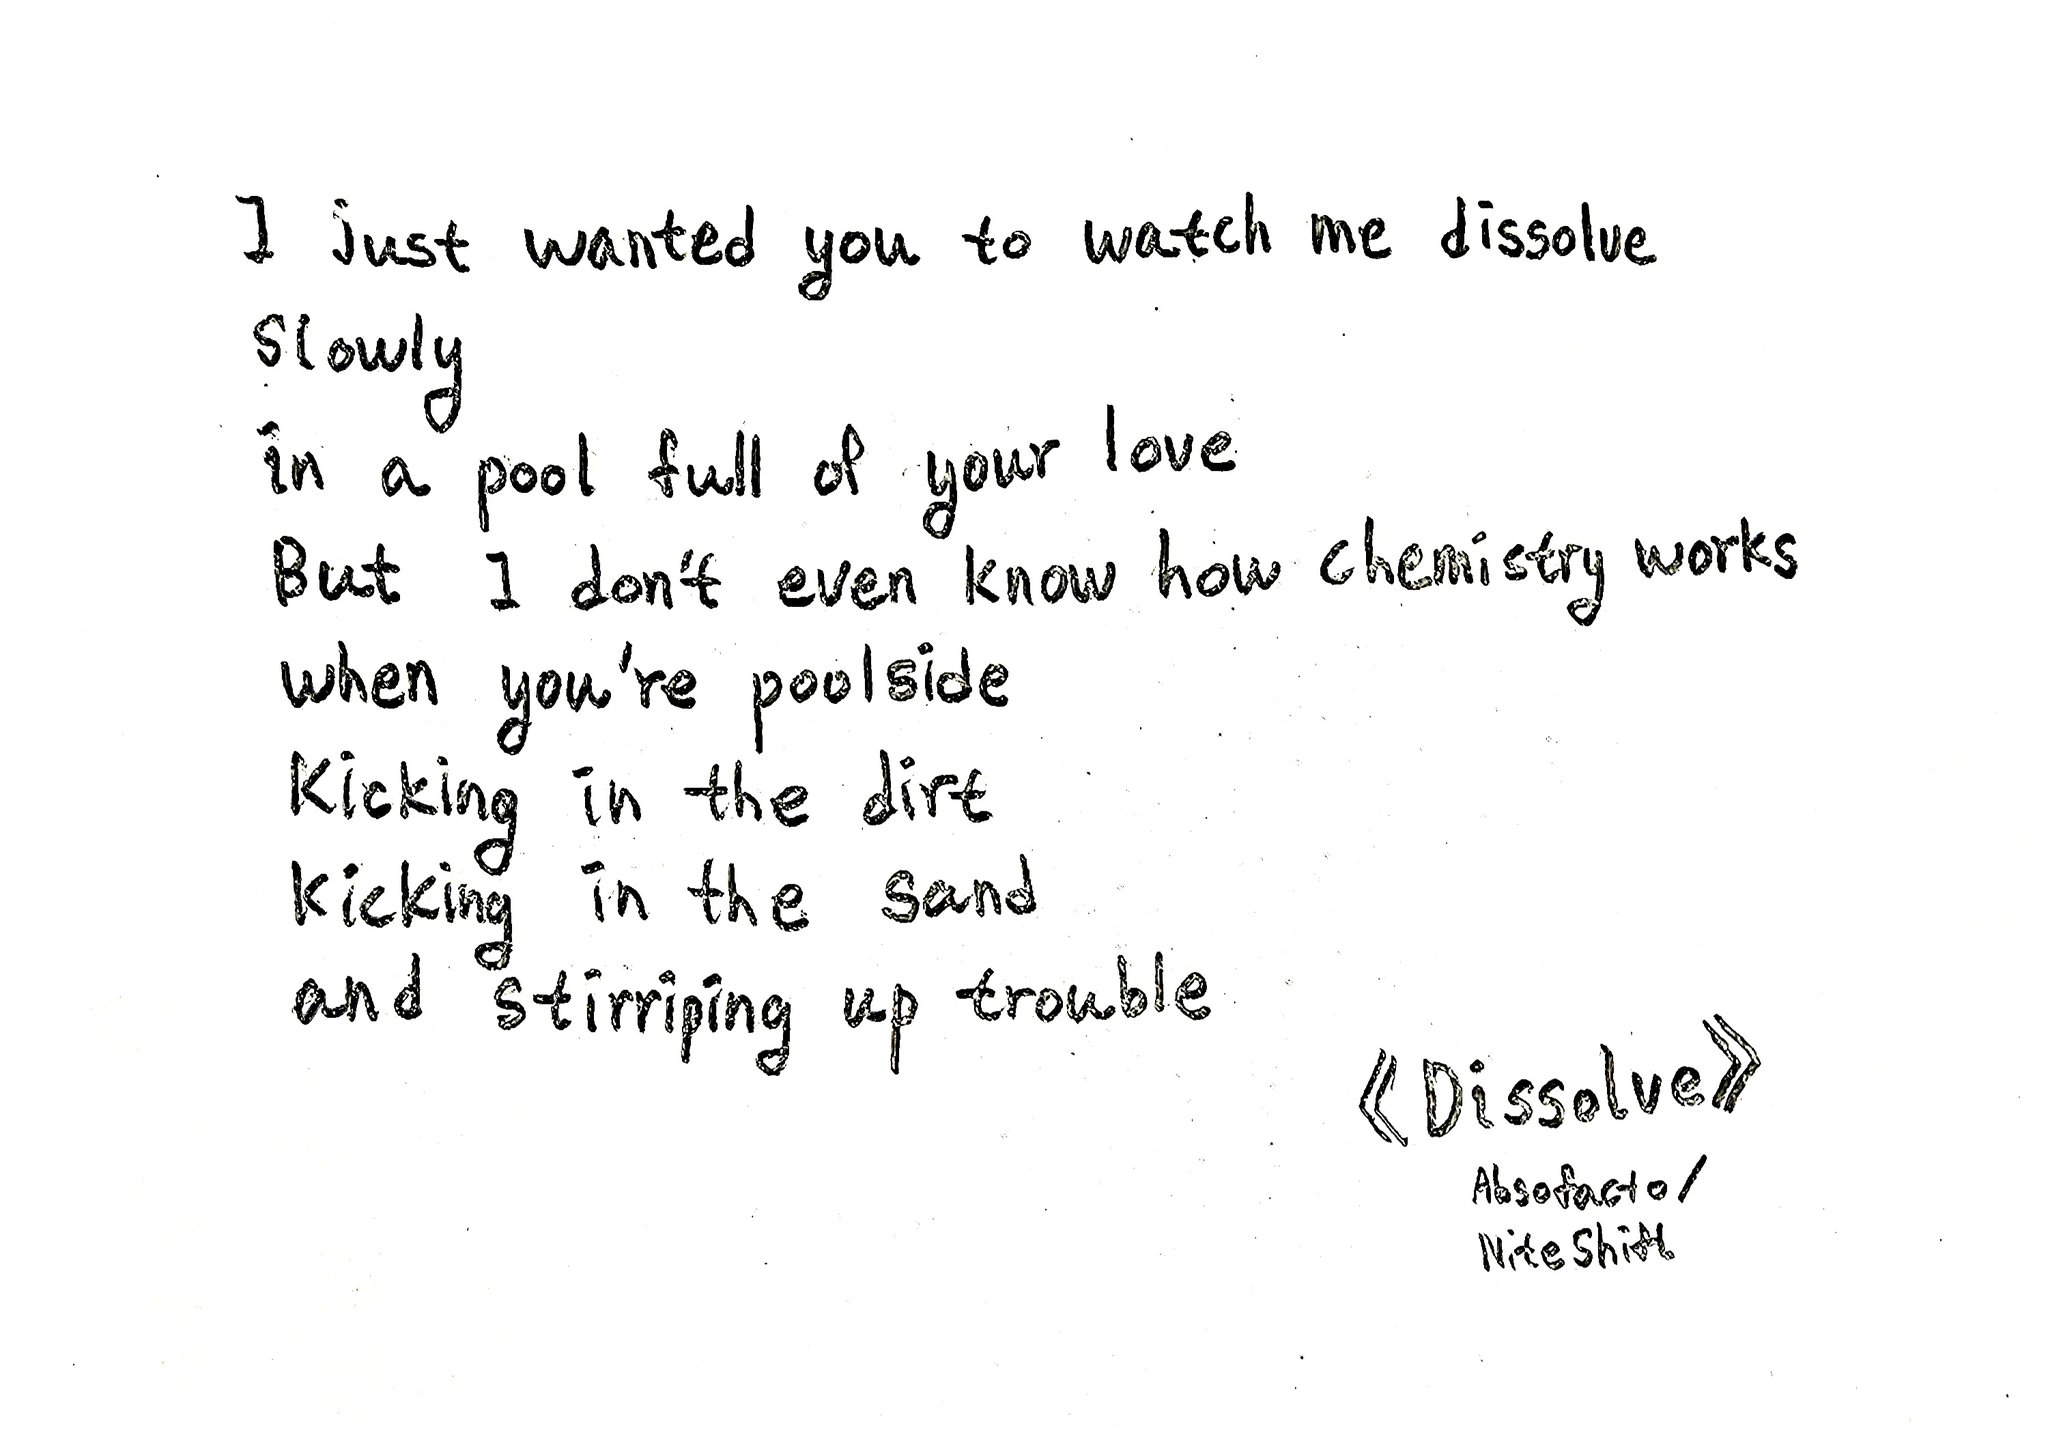 I just wanted you to watch me dissolve
Slowly
in a pool full of your love
But I don't even know how chemistry works
when you're poolside
Kicking in the dirt
kicking in the sand
and stirriping up trouble
《Dissolve》
Absofacto/
NiteShift